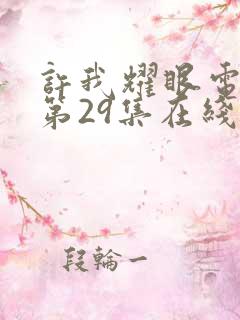 許我耀眼電
第29集在綫
段輪一